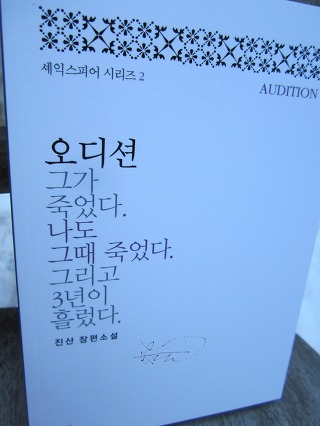 셰익스피어 시리즈 2
AUDITION
오디션
그가
죽었다.
나도
그때 죽었다.
그리고
3년이
흘렀다.
진산 장편소설